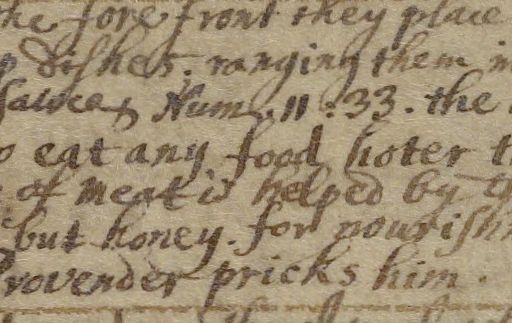 the fore front they place
dishes. ranging them in
sauces Num. 11:33. the
eat any food hoter
of meat is helped by
but honey. for nourish
rovender pricks him.